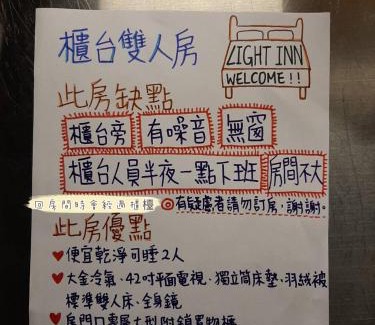 櫃台雙人房
LIGHT INN
WELCOME!!
此房缺點
櫃台旁 有噪音 無窗
櫃台人員半夜一點下班 房間不大
回房間時會經過櫃檯
有疑慮者請勿訂房,謝謝。
此房優點
便宜乾淨可睡2人
大金冷氣、42吋平面電視、獨立筒床墊、羽絨被
標準雙人床、全身鏡
房門口專屬大型附鎖置物櫃